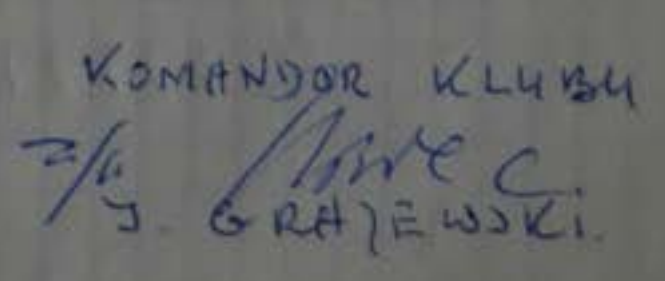 KOMANDOR KLUBU
J. GRAJEWSKI.